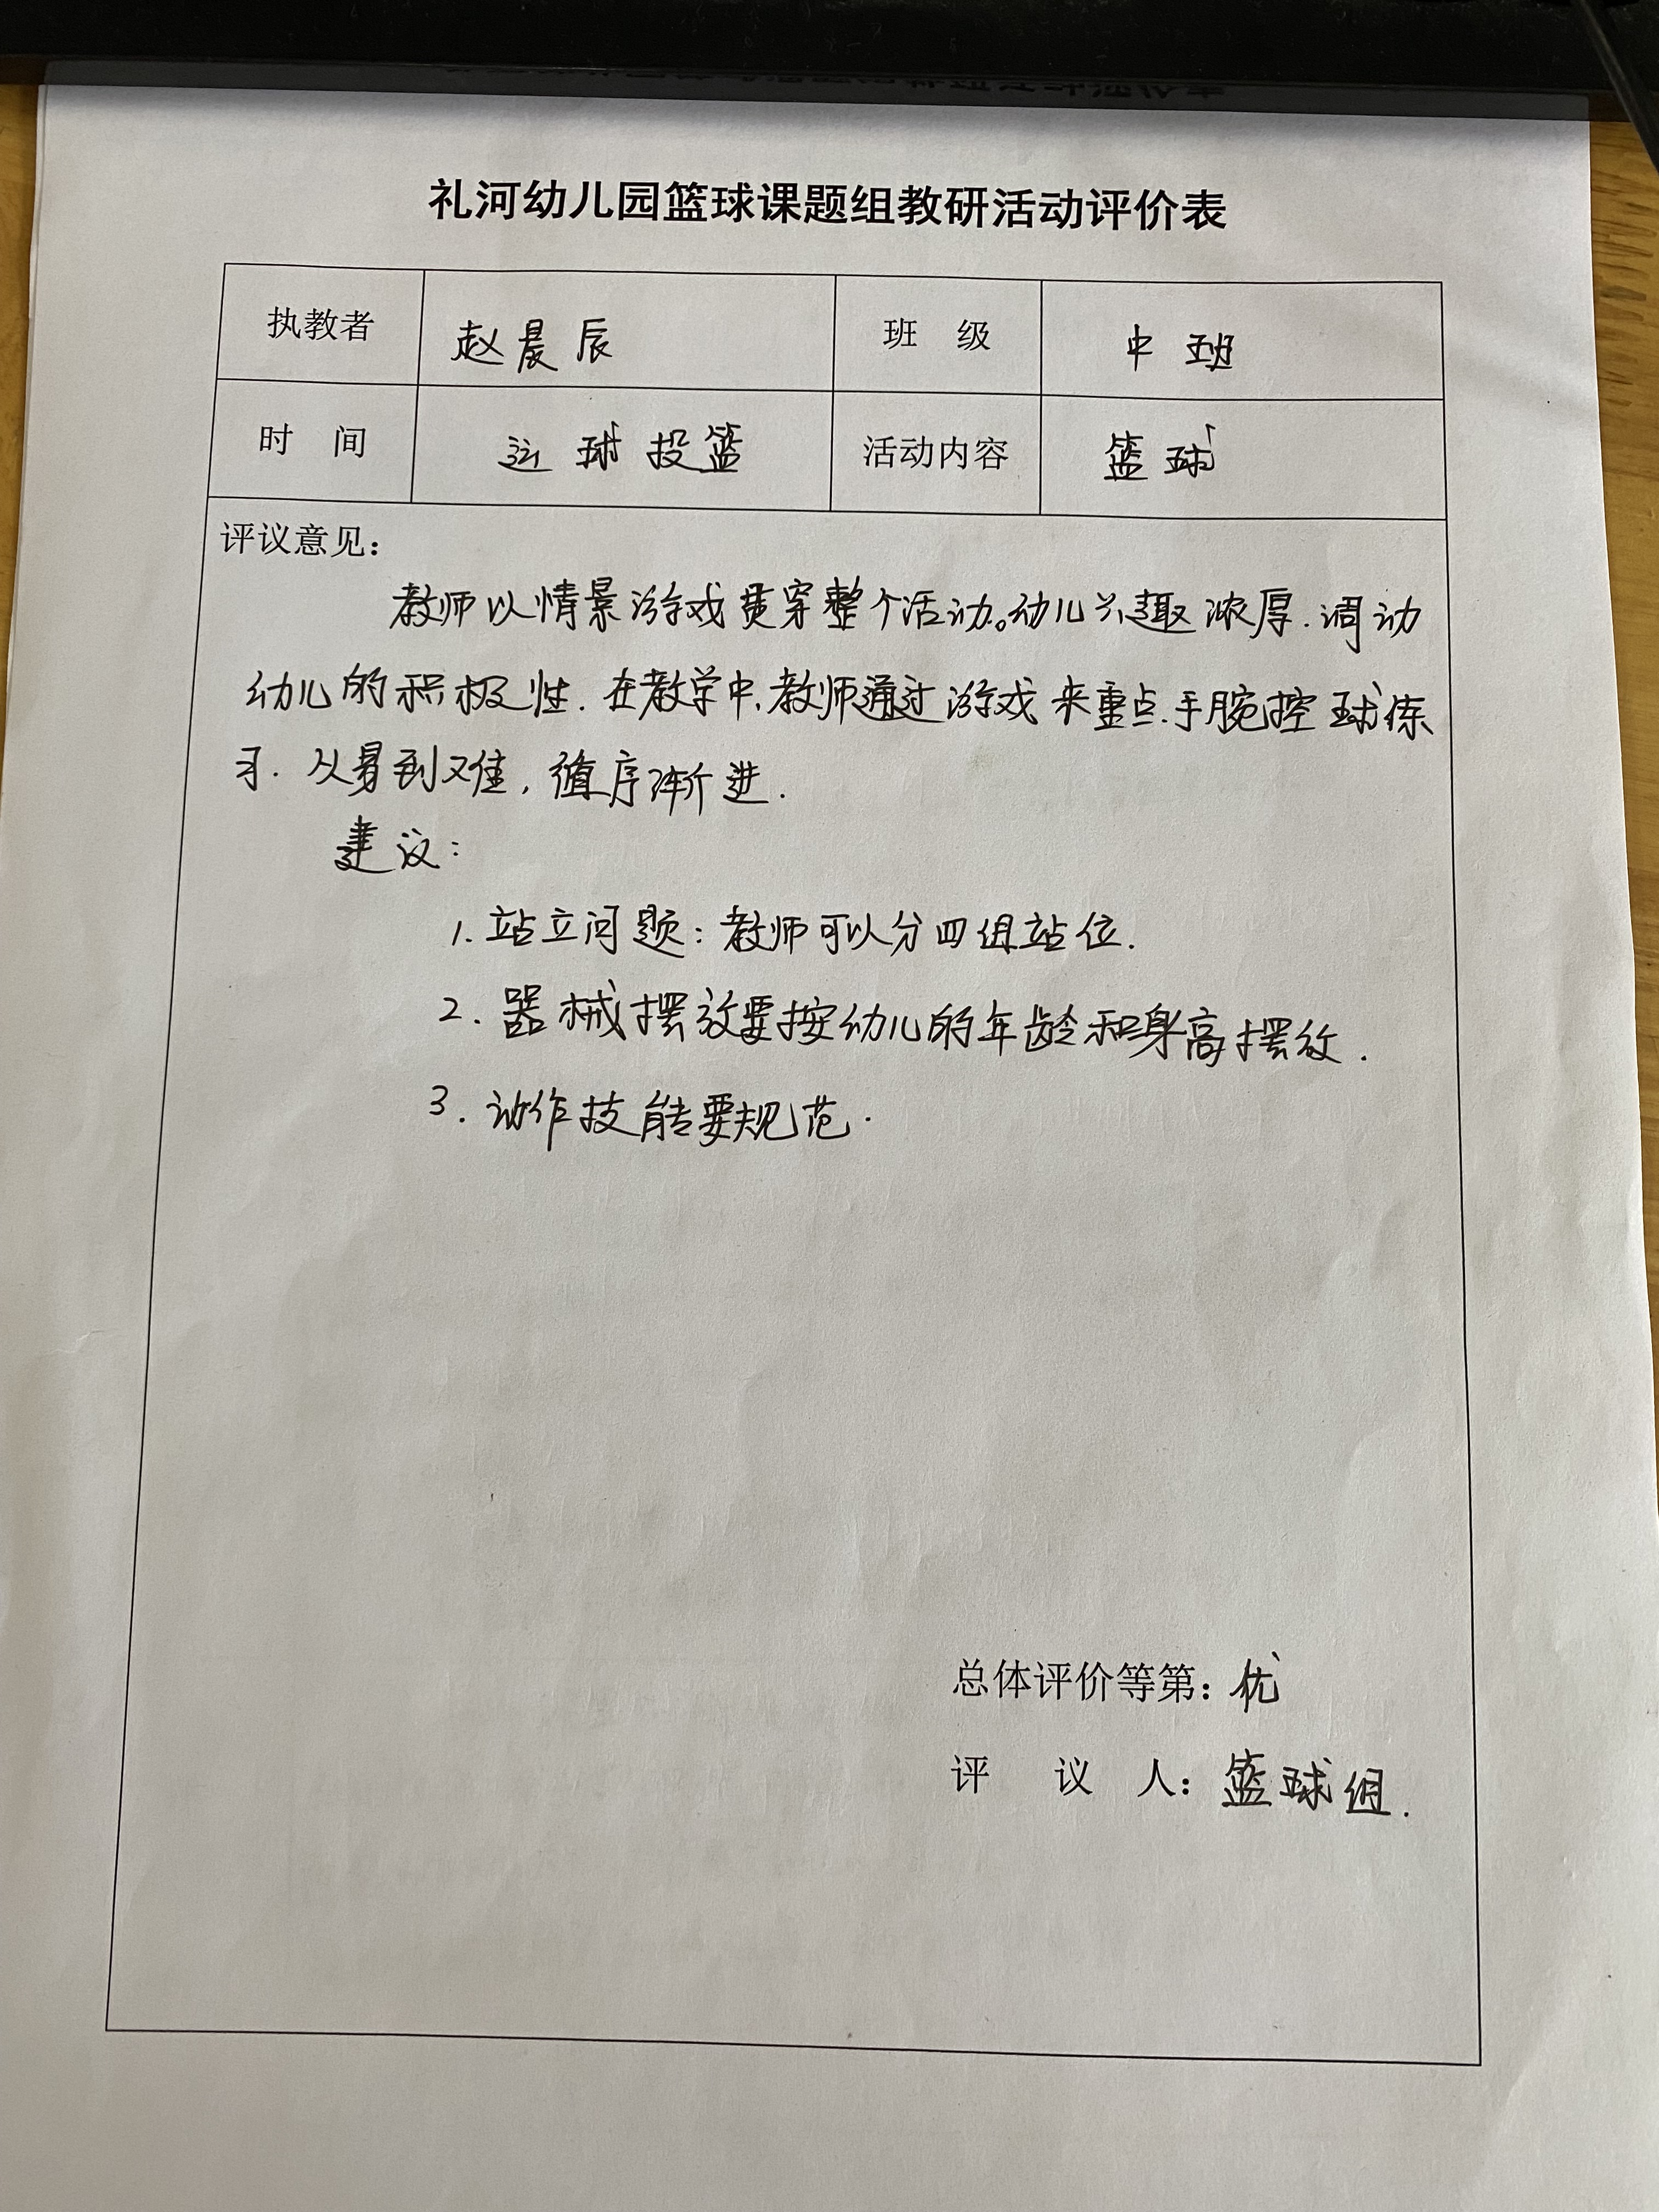 礼河幼儿园篮球课题组教研活动评价表
执教者 赵晨辰 班 级 中班
时 间 运球投篮 活动内容 篮球
评议意见：
教师以情景游戏贯穿整个活动。幼儿兴趣浓厚.调动
幼儿的积极性.在教学中,教师通过游戏来重点.手腕控球练
习.从易到难,循序渐进.
建议：
1.站立问题：教师可以分四组站位.
2.器械摆放要按幼儿的年龄和身高摆放.
3.动作技能要规范.
总体评价等第：优
评 议 人：篮球组.